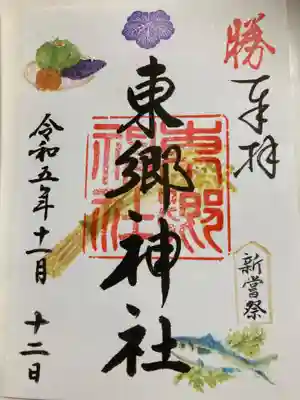 勝
奉拝
東郷神社
東郷神社
新嘗祭
令和五年十一月 十二日